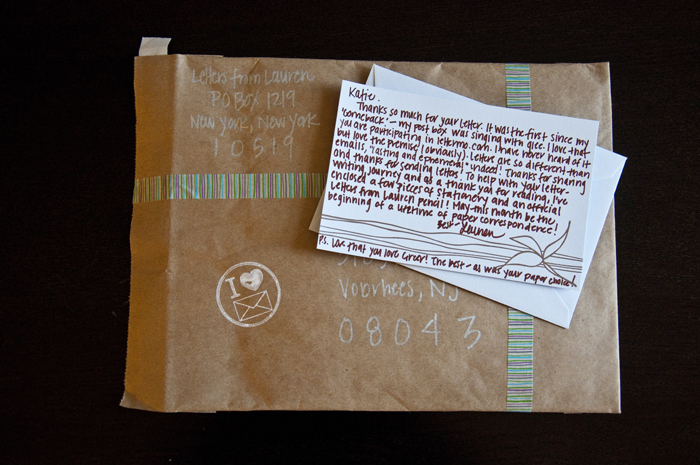 Letters from Lauren
PO Box 1219
New York, New York
10519
Katie,
Thanks so much for your letter. It was the first since my
"comeback" - my post box was singing with glee. I love that
you are participating in letermo.com. I have never heard of it
but love the premise (obviously). Letters are so different than
emails, "lasting and ephemoral" indeed! Thanks for sharing
and thanks for sending letters! To help with your letter-
writing journey and as a thank you for reading, I've
enclosed a few pieces of stationery and an official
Letters from Lauren pencil! May this month be the
beginning of a lifetime of paper correspondence!
Best - Lauren
P.S. Love that you love Greer! The best - as was your paper choice!
Voorhees, NJ
08043
I